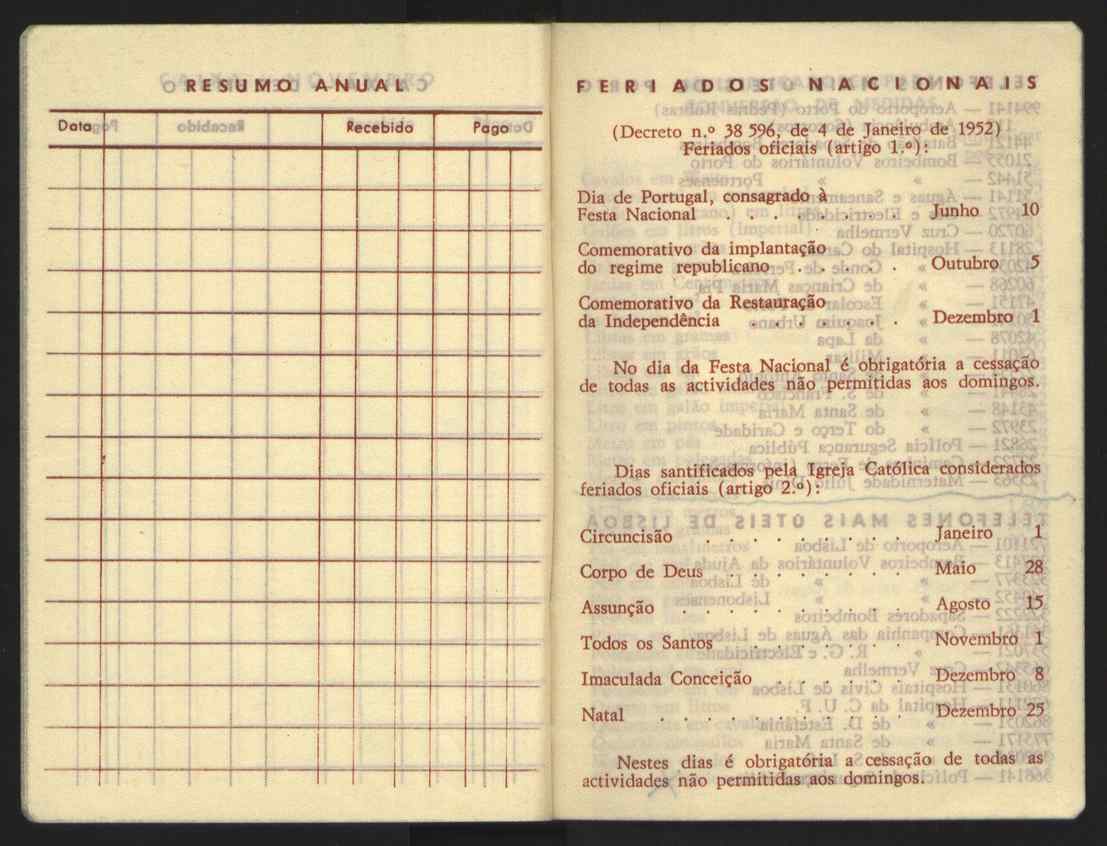 RESUMO ANUAL
Data Recebido Pago
FERIADOS NACIONAIS
(Decreto n.º 38 596, de 4 de Janeiro de 1952)
Feriados oficiais (artigo 1.º):
Dia de Portugal, consagrado à
Festa Nacional . . . . . . . . Junho 10
Comemorativo da implantação
do regime republicano . . . . . Outubro 5
Comemorativo da Restauração
da Independência . . . . . . . Dezembro 1
No dia da Festa Nacional é obrigatória a cessação
de todas as actividades não permitidas aos domingos.
Dias santificados pela Igreja Católica considerados
feriados oficiais (artigo 2.º):
Circuncisão . . . . . . . . . Janeiro 1
Corpo de Deus . . . . . . . . Maio 28
Assunção . . . . . . . . . . Agosto 15
Todos os Santos . . . . . . . Novembro 1
Imaculada Conceição . . . . . . Dezembro 8
Natal . . . . . . . . . . . Dezembro 25
Nestes dias é obrigatória a cessação de todas as
actividades não permitidas aos domingos.